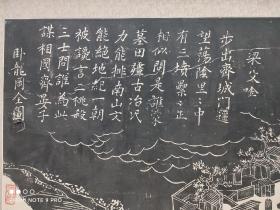 梁父吟
步出齊城門遥
望蕩陰里〻中
有三墳纍〻正
相似問是誰家
墓田疆古冶氏
力能排南山文
能絶地紀一朝
被讒言二桃殺
三士問誰為此
謀相國齊晏子
臥龍岡全圖